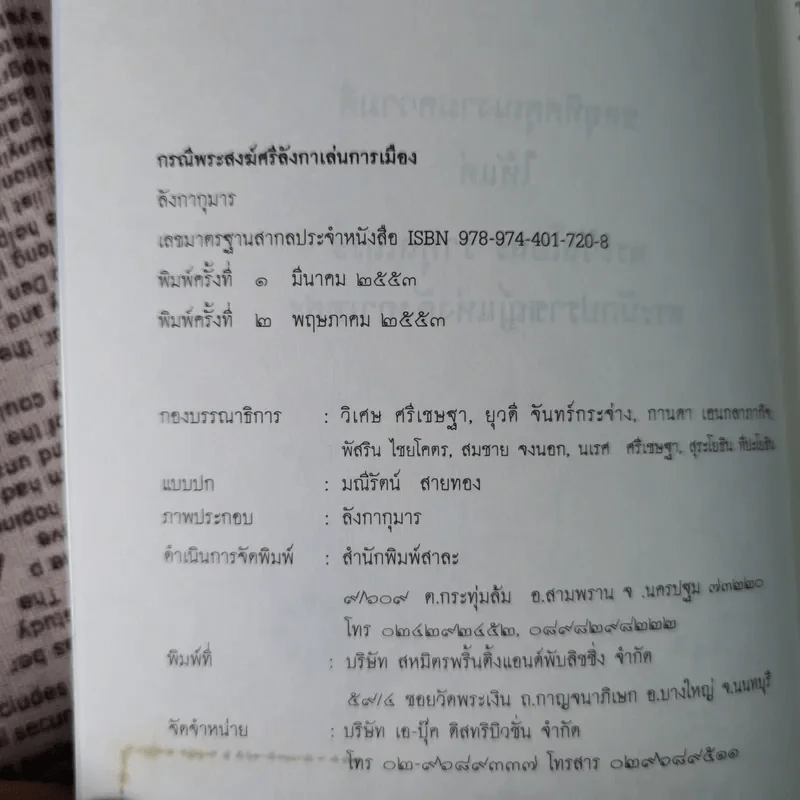 กรณีพระสงฆ์ศรีลังกาเล่นการเมือง
ลังกากุมาร
เลขมาตรฐานสากลประจำหนังสือ ISBN 978-974-401-720-8
พิมพ์ครั้งที่ ๑ มีนาคม ๒๕๕๓
พิมพ์ครั้งที่ ๒ พฤษภาคม ๒๕๕๓
กองบรรณาธิการ : วิเศษ ศรีเชษฐา, ยุวดี จันทร์กระจ่าง, กานดา
พัสริน ไชยโคตร, สมชาย จงนอก, นเรศ ศรีเชษฐา, สุระโยธิน
แบบปก : มณีรัตน์ สายทอง
ภาพประกอบ : ลังกากุมาร
ดำเนินการจัดพิมพ์ : สำนักพิมพ์สาละ
๙/๖๐๙ ต.กระทุ่มล้ม อ.สามพราน จ .นครปฐม ๗๓๒๒๐
โทร ๐๒๔๒๙๒๔๕๒, ๐๘๙๘๒๙๘๒๒๒
พิมพ์ที่ : บริษัท สหมิตรพริ้นติ้งแอนด์พับลิชชิ่ง จำกัด
๕๙/๔ ซอยวัดพระเงิน ถ.กาญจนาภิเษก อ.บางใหญ่ จ.นนทบุรี
จัดจำหน่าย : บริษัท เอ-บุ๊ค ดิสทริบิวชั่น จำกัด
โทร ๐๒-๙๖๘๙๓๓๗ โทรสาร ๐๒๙๖๘๙๕๑๑